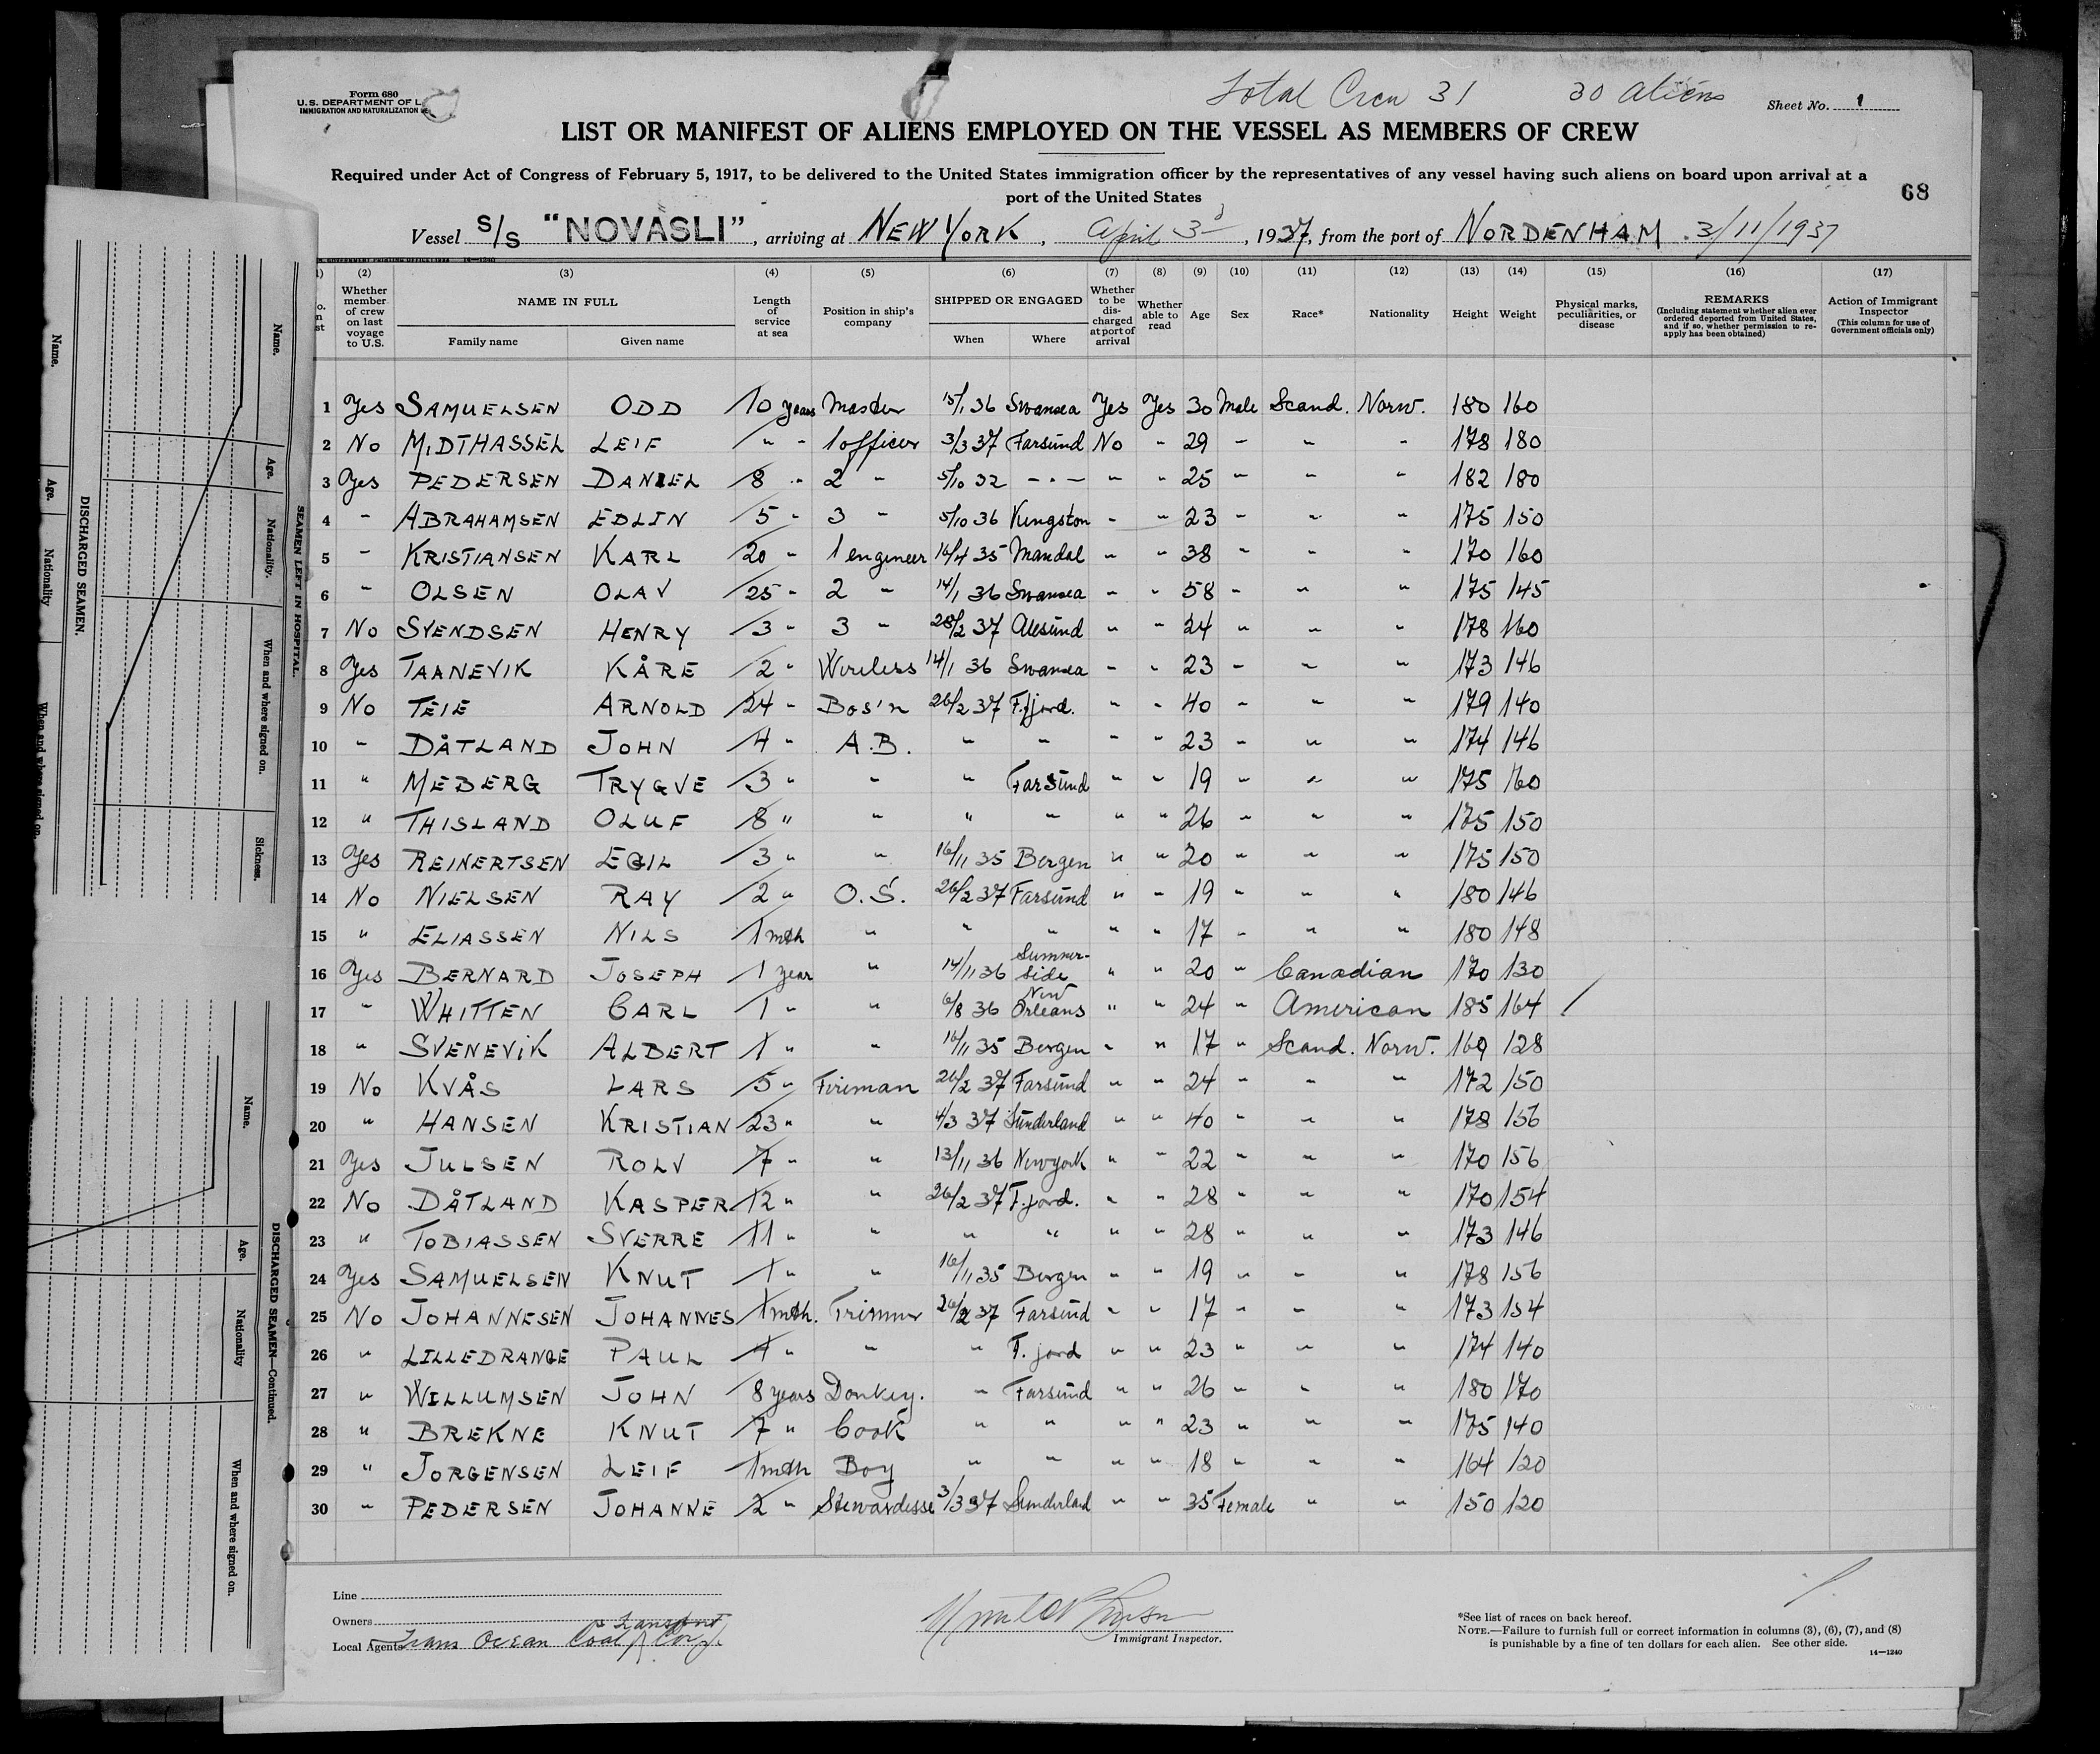 Form 680
U.S. DEPARTMENT OF L
IMMIGRATION AND NATURALIZATION
Total Crew 31 30 aliens Sheet No. 1
LIST OR MANIFEST OF ALIENS EMPLOYED ON THE VESSEL AS MEMBERS OF CREW
Required under Act of Congress of February 5, 1917, to be delivered to the United States immigration officer by the representatives of any vessel having such aliens on board upon arrival at a
port of the United States
68
Vessel S/S "NOVASLI", arriving at NEW YORK, April 3d, 1937, from the port of NORDENHAM 3/11/1937
(2) (3) (4) (5) (6) (7) (8) (9) (10) (11) (12) (13) (14) (15) (16) (17)
Whether member of crew on last voyage to U.S. NAME IN FULL Family name Given name Length of service at sea Position in ship's company SHIPPED OR ENGAGED When Where Whether to be discharged at port of arrival Whether able to read Age Sex Race* Nationality Height Weight Physical marks, peculiarities, or disease REMARKS (Including statement whether alien ever ordered deported from United States, and if so, whether permission to reapply has been obtained) Action of Immigrant Inspector (This column for use of Government officials only)
1 Yes SAMUELSEN ODD 10 years Master 15/1 36 Swansea Yes Yes 30 Male Scand. Norw. 180 160
2 No MIDTHASSEL LEIF " - 1 officer 3/3 37 Farsund No " 29 - " - 178 180
3 Yes PEDERSEN DANIEL 8 " 2 " 5/10 32 - " - " " 25 - " " 182 180
4 " ABRAHAMSEN EDLIN 5 " 3 " 5/10 36 Kungston " " 23 - " " 175 150
5 " KRISTIANSEN KARL 20 " 1 engineer 16/4 35 Mandal " " 38 " " " 170 160
6 " OLSEN OLAV 25 " 2 " 14/1 36 Swansea " " 58 - " " 175 145
7 No SVENDSEN HENRY 3 " 3 " 28/2 37 Alesund " " 24 " " " 178 160
8 Yes TAANEVIK KÅRE 2 " Wireless 14/1 36 Swansea " " 23 - " " 173 146
9 No TEIE ARNOLD 24 " Bos'n 26/2 37 F.fjord. " " 40 - " " 179 140
10 " DÅTLAND JOHN 4 " A.B. " " " " 23 - " " 174 146
11 " MEBERG TRYGVE 3 " " " Farsund " " 19 " " " 175 160
12 " THISLAND OLUF 8 " " " " " " 26 " " " 175 150
13 Yes REINERTSEN EGIL 3 " " 16/11 35 Bergen " " 20 " " " 175 150
14 No NIELSEN RAY 2 " O.S. 26/2 37 Farsund " " 19 " " " 180 146
15 " ELIASSEN NILS 1 mth " " " " " 17 - " " 180 148
16 Yes BERNARD JOSEPH 1 year " 14/11 36 Summer-side " " 20 " Canadian 170 130
17 " WHITTEN CARL 1 " " 6/8 36 New Orleans " " 24 " American 185 164 /
18 " SVENEVIK ALBERT 1 " " 16/11 35 Bergen " " 17 " Scand. Norw. 169 128
19 No KVÅS LARS 5 " Fireman 26/2 37 Farsund " " 24 " " " 172 150
20 " HANSEN KRISTIAN 23 " " 4/3 37 Sunderland " " 40 " " " 178 156
21 Yes JULSEN ROLV 7 " " 13/11 36 Newyork " " 22 " " " 170 156
22 No DÅTLAND KASPER 12 " " 26/2 37 F.jord. " " 28 " " " 170 154
23 " TOBIASSEN SVERRE 11 " " " " " " 28 " " " 173 146
24 Yes SAMUELSEN KNUT 1 " " 16/11 35 Bergen " " 19 " " " 178 156
25 No JOHANNESEN JOHANNES 1 mth. Trimmer 26/2 37 Farsund " " 17 " " " 173 154
26 " LILLEDRANGE PAUL 1 " " " F. jord " " 23 " " " 174 140
27 " WILLUMSEN JOHN 8 years Donkey. " Farsund " " 26 " " " 180 170
28 " BREKNE KNUT 7 " Cook " " " " 23 " " " 175 140
29 " JORGENSEN LEIF 1 mth Boy " " " " 18 " " " 164 120
30 " PEDERSEN JOHANNE 2 " Stewardesse 3/3 37 Sunderland " " 35 Female " " 150 120
Line
Owners
Local Agents Trans Ocean Coal & Transport Corp.
Immigrant Inspector.
*See list of races on back hereof.
NOTE.—Failure to furnish full or correct information in columns (3), (6), (7), and (8)
is punishable by a fine of ten dollars for each alien. See other side.
14—1240
SEAMEN LEFT IN HOSPITAL.
Name. Age. Nationality. When and where signed on. Sickness.
DISCHARGED SEAMEN.
Name. Age. Nationality When and where signed on.
DISCHARGED SEAMEN—Continued.
Name. Age. Nationality When and where signed on.